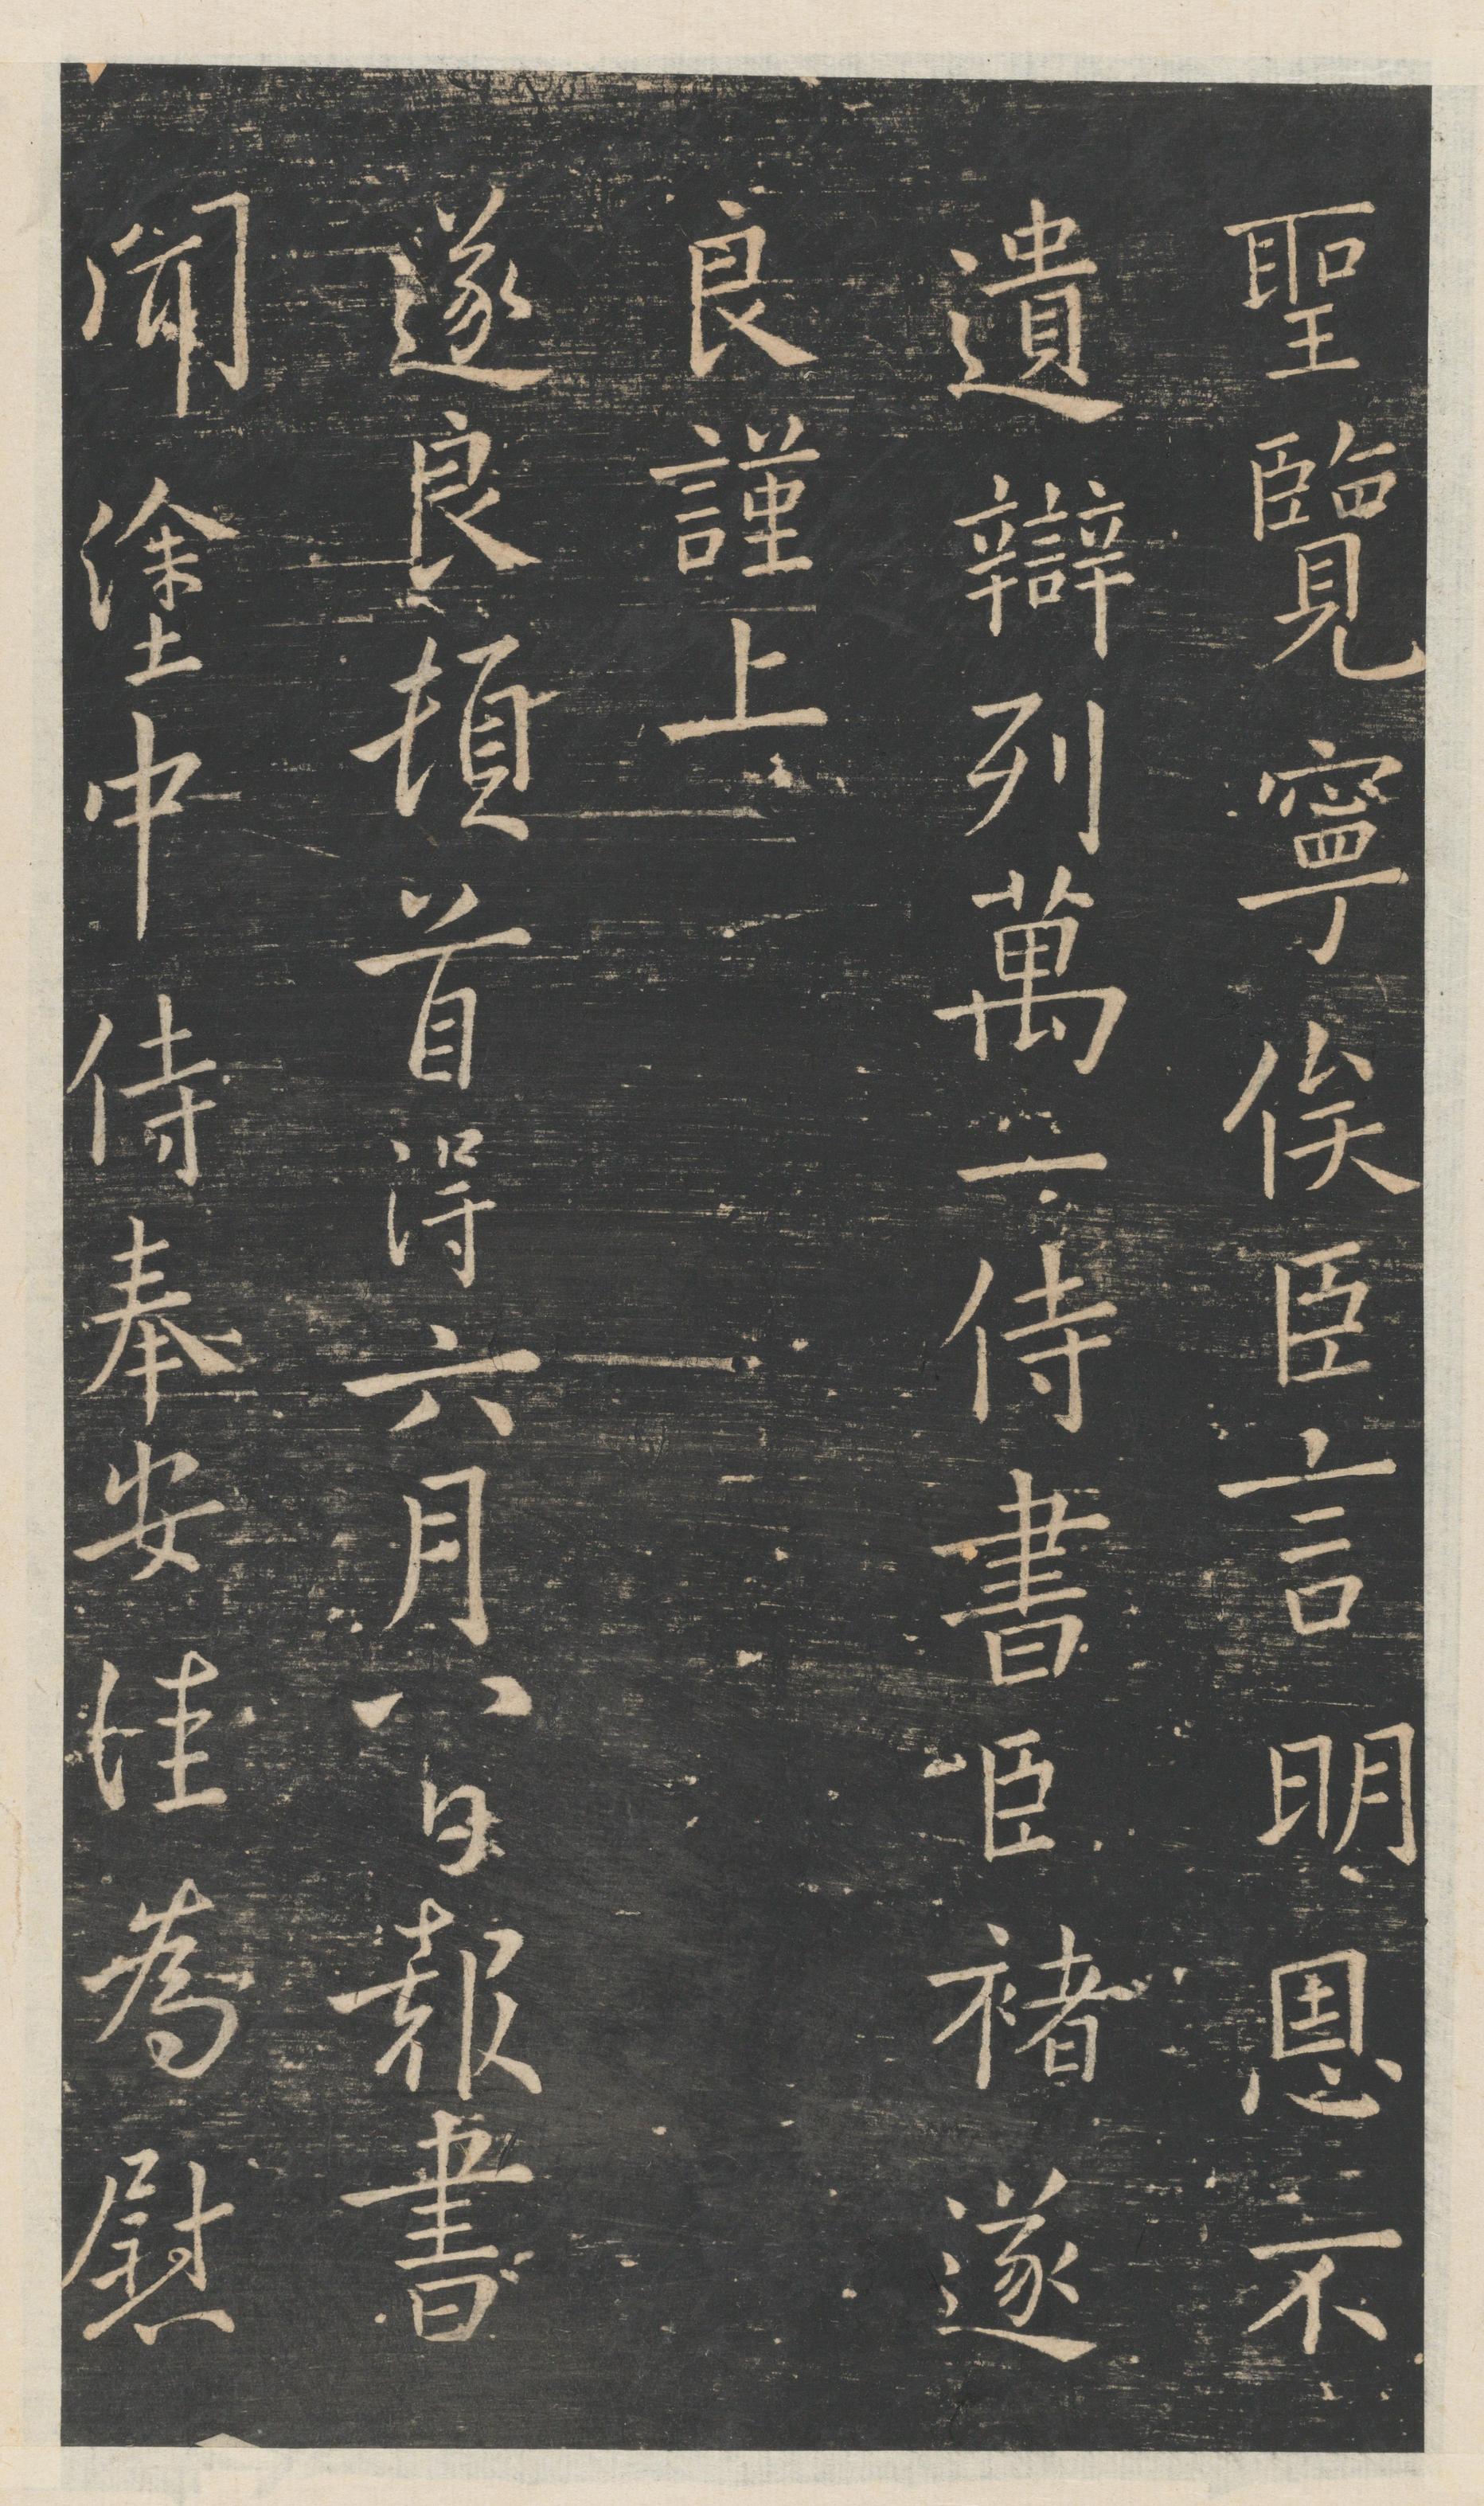 聖覽寧俟臣言明恩不
遺辯列萬一侍書臣褚遂
良謹上
遂良頓首得六月八日報書
聞塗中侍奉安佳為慰